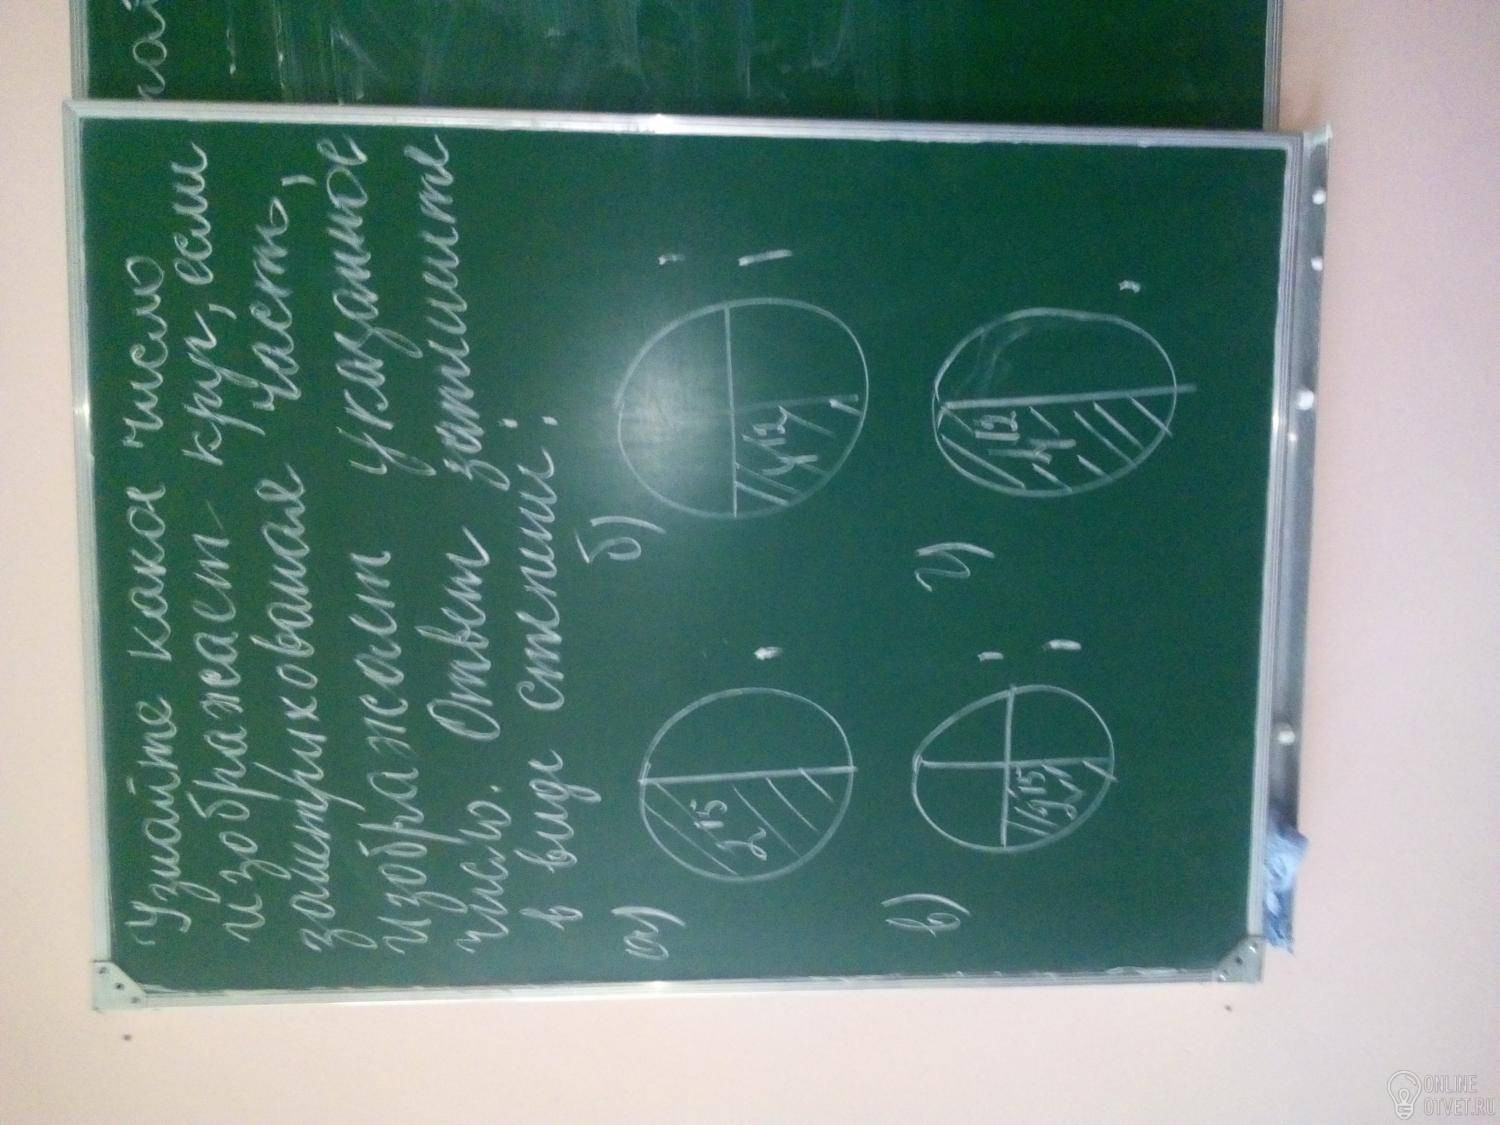 Узнайте какое число
изображает круг, если
заштрихованая часть,
изображает указанное
число. Ответ запишите
в виде степени:
а) 2¹⁵
б) 4¹²
в) 2¹⁵
г) 4¹²
ONLINE
OTVET.RU